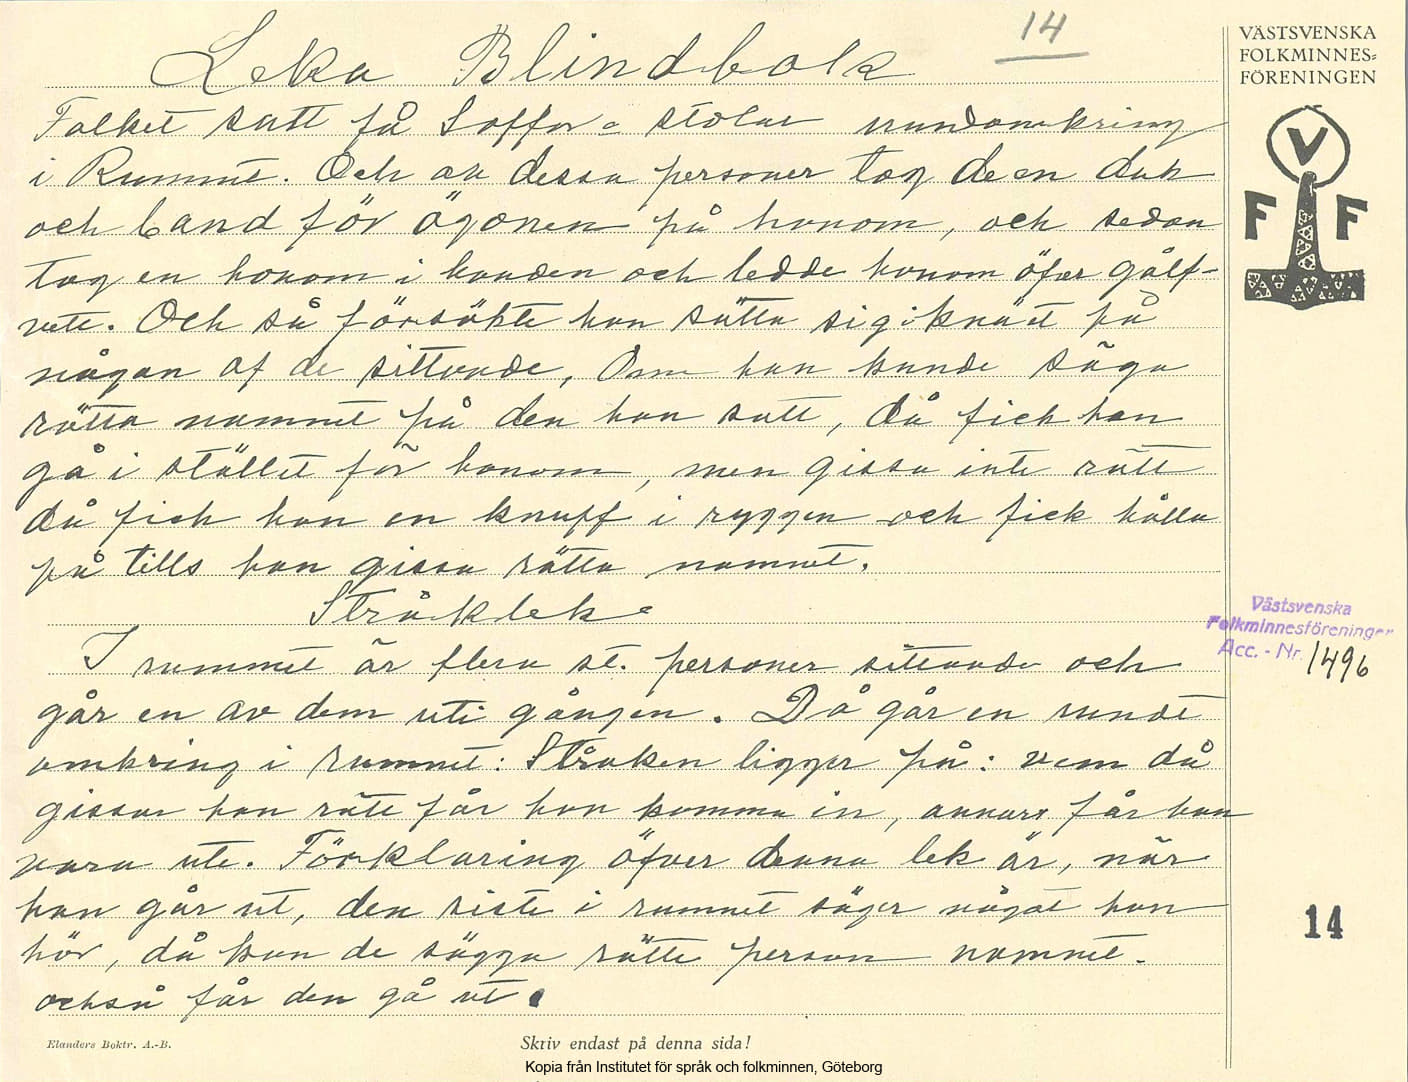 14
Leka Blindbock
Folket satt på Soffor o stolar rundomkring
i Rummet. Och av dessa personer tog de en duk
och band för ögonen på honom, och sedan
tog en honom i handen och ledde honom öfver gålf-
vett. Och så försökte han sätta sig i knäet på
någon af de sittvade, Om han kunde säga
rätta nammet på den han satt, då fick han
gå i stället för honom, men gissa inte rätt
då fick han en knuff i ryggen och fick hålla
på tills han gissa rätta nammet.
Stråkleke
I rummet är flera st. personer sittvade och
går en av dem uti gången. Då går en rundt
omkring i rummet: Stråken ligger på: vem då
gissar han rätt får han komma in, annars får han
vara ute. Förklaring öfver denna lek är, när
han går ut, den siste i rummet säger något han
hör, då kan de sägga rätte person nammet.
också får den gå ut.
VÄSTSVENSKA
FOLKMINNES=
FÖRENINGEN
V
F F
Västsvenska
Folkminnesföreningen
Acc. - Nr. 1496
14
Elanders Boktr. A.-B.
Skriv endast på denna sida!
Kopia från Institutet för språk och folkminnen, Göteborg